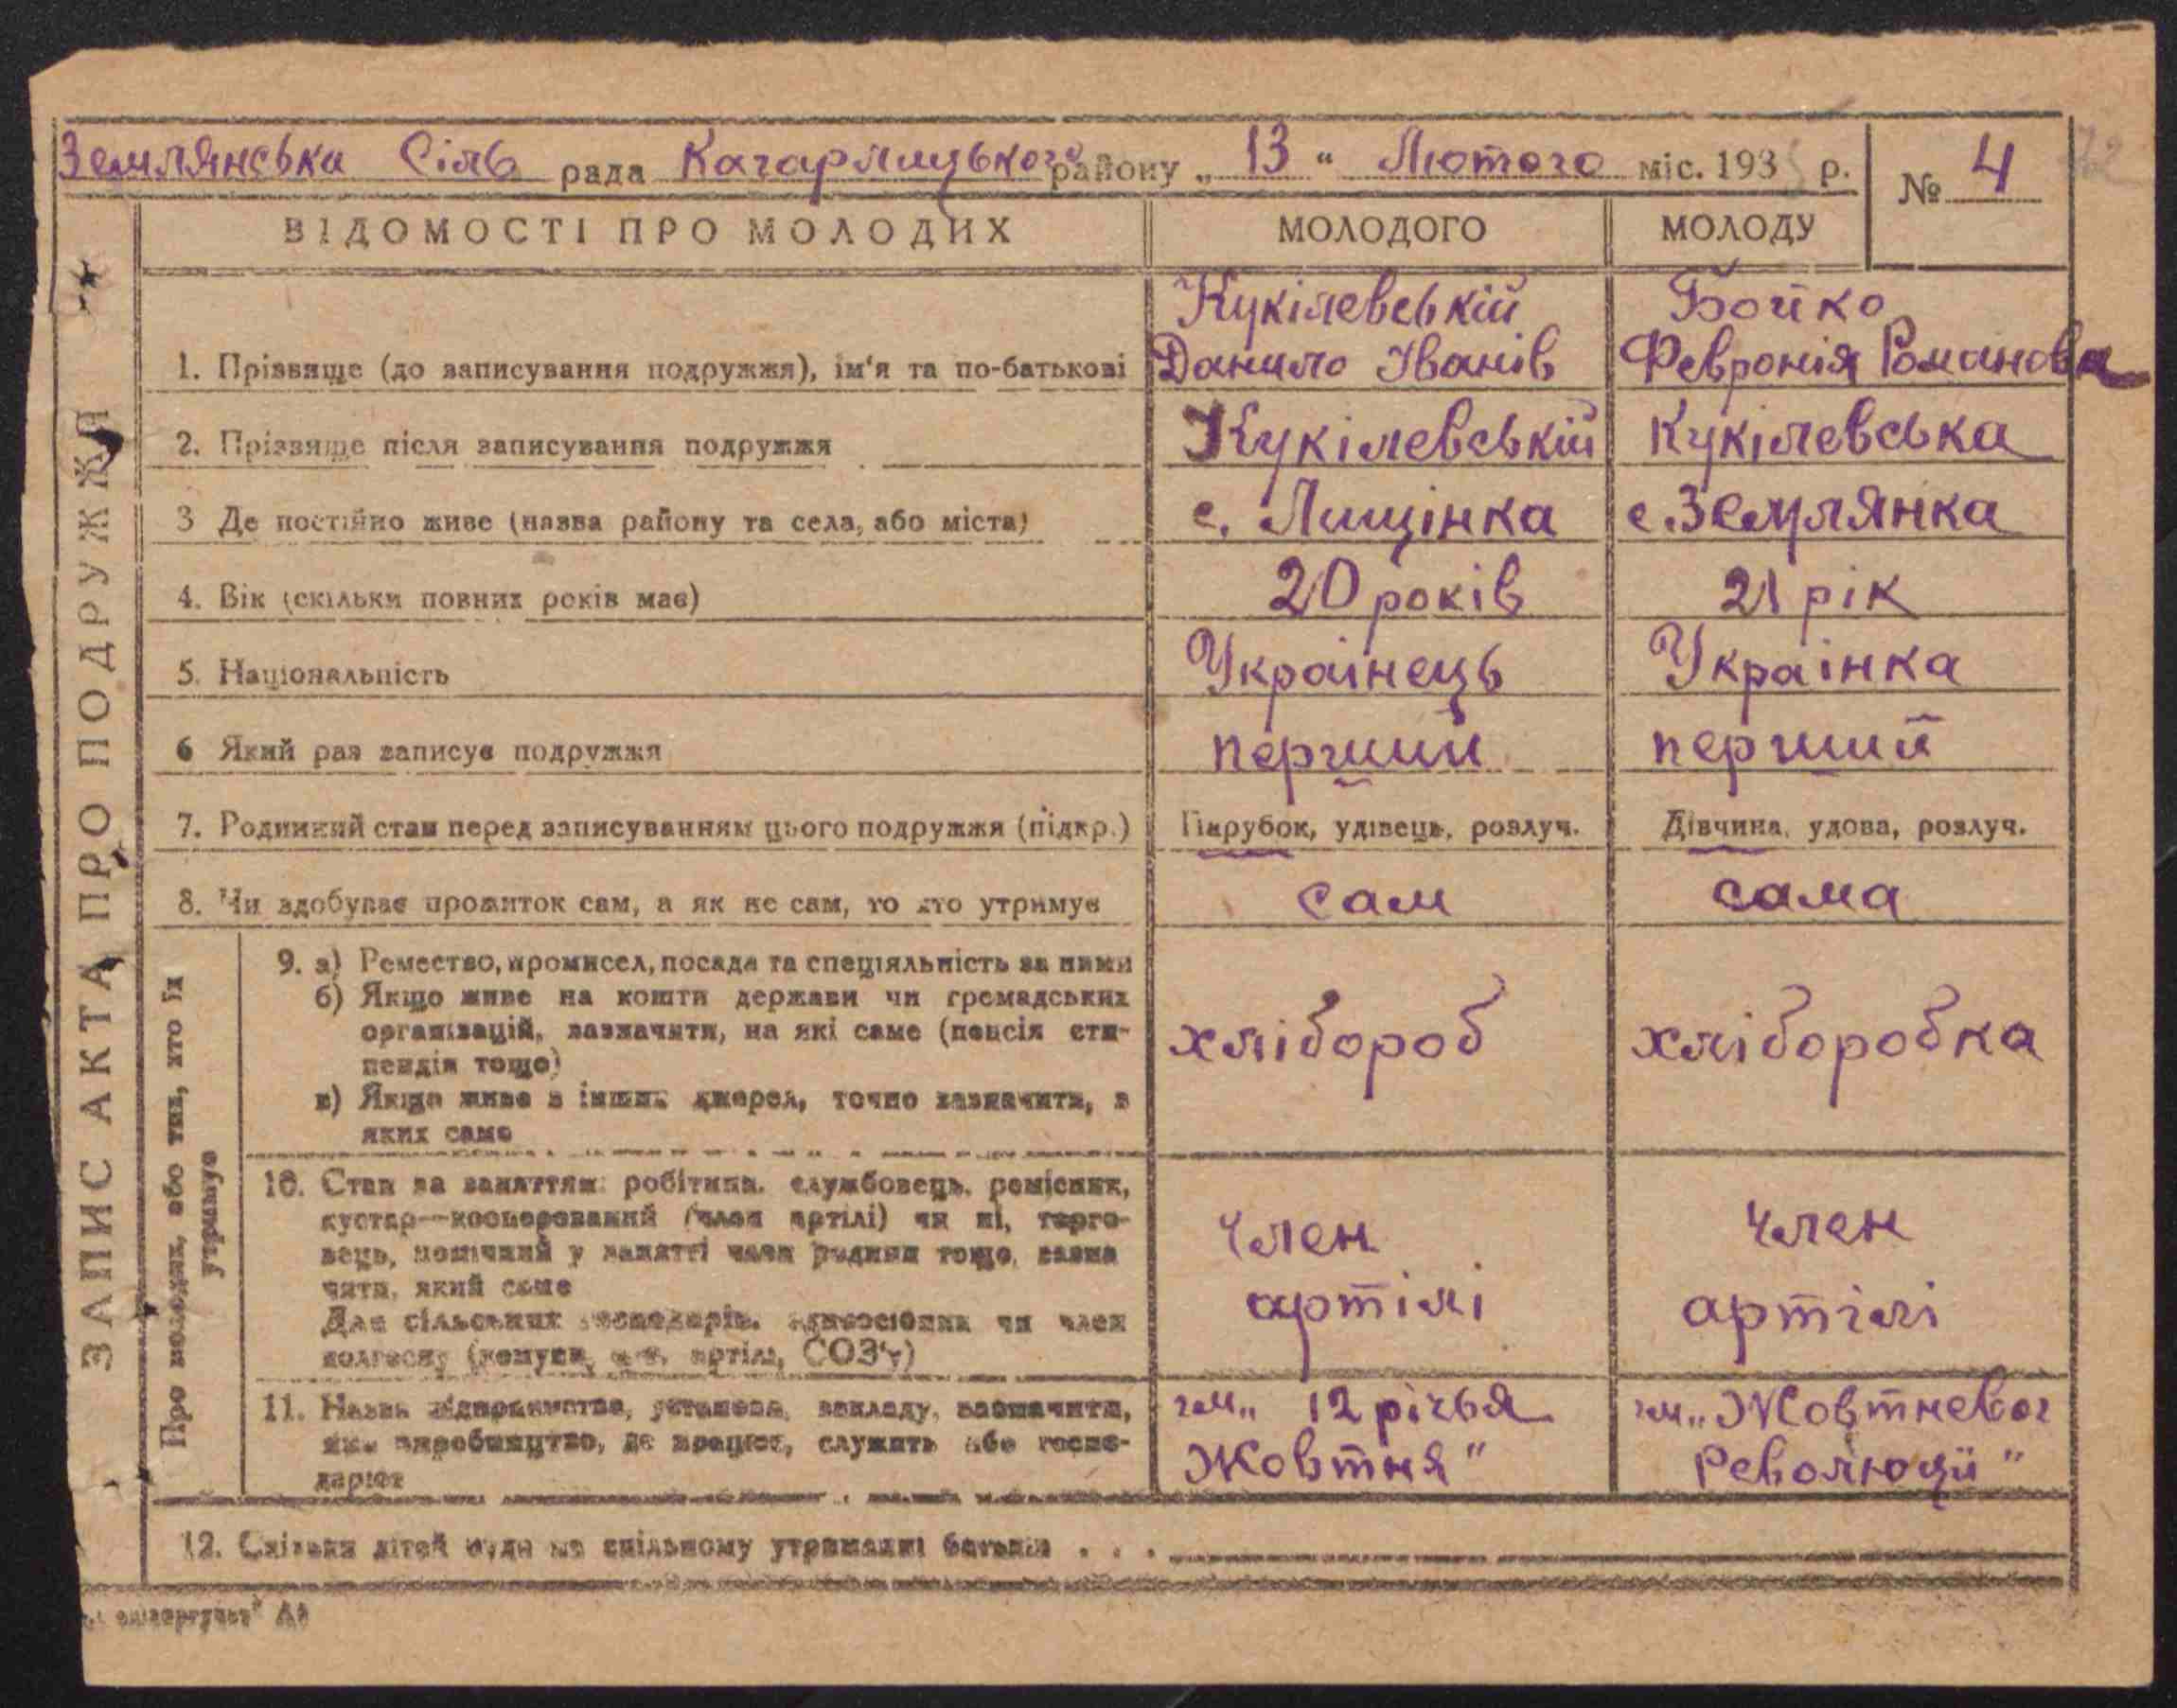 Землянська Сіль рада Кагарлицького району „ 13 “ Лютого міс. 193 р.
№ 4
ВІДОМОСТІ ПРО МОЛОДИХ
МОЛОДОГО
МОЛОДУ
ЗАПИС АКТА ПРО ПОДРУЖЖЯ
1. Прізвище (до записування подружжя), ім'я та по-батькові
Кукілевській
Данило Іванів
Бойко
Февронія Романова
2. Прізвище після записування подружжя
Кукілевській
Кукілевська
3 Де постійно живе (назва району та села, або міста)
с. Лищінка
с. Землянка
4. Вік (скільки повних років має)
20 років
21 рік
5. Національність
Українець
Українка
6 Який раз записує подружжя
перший
перший
7. Родинний стан перед записуванням цього подружжя (підкр.)
Парубок, удівець, розлуч.
Дівчина, удова, розлуч.
8. Чи здобуває прожиток сам, а як не сам, то хто утримує
сам
сама
Про молодих, або тих, хто їх
утримує
9. а) Ремество, промисел, посада та спеціяльність за ними
б) Якщо живе на кошти держави чи громадських
організацій, зазначити, на які саме (пенсія сти-
пендія тощо)
в) Якщо живе з інших джерел, точно зазначити, з
яких саме
хлібороб
хліборобка
10. Стан за заняттям: робітник, службовець, ремісник,
кустар—кооперований (член артілі) чи ні, торго-
вець, помічний у занятті член родини тощо, зазна
чити, який саме
Для сільських господарів, одноосібник чи член
колгоспу (комуни, артілі, СОЗ'у)
член
артілі
член
артілі
11. Назва підприємства, установи, закладу, зазначити,
яке виробництво, де працює, служить або госпо-
дарює
ім„ 12 річья
Жовтня"
ім„ Жовтневої
Революції"
12. Скільки дітей буде на спільному утриманні батьків . . .